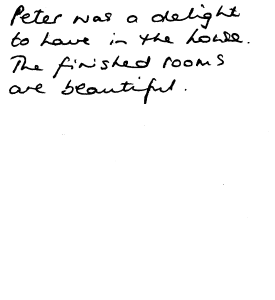 Peter was a delight
to have in the house.
The finished rooms
are beautiful.